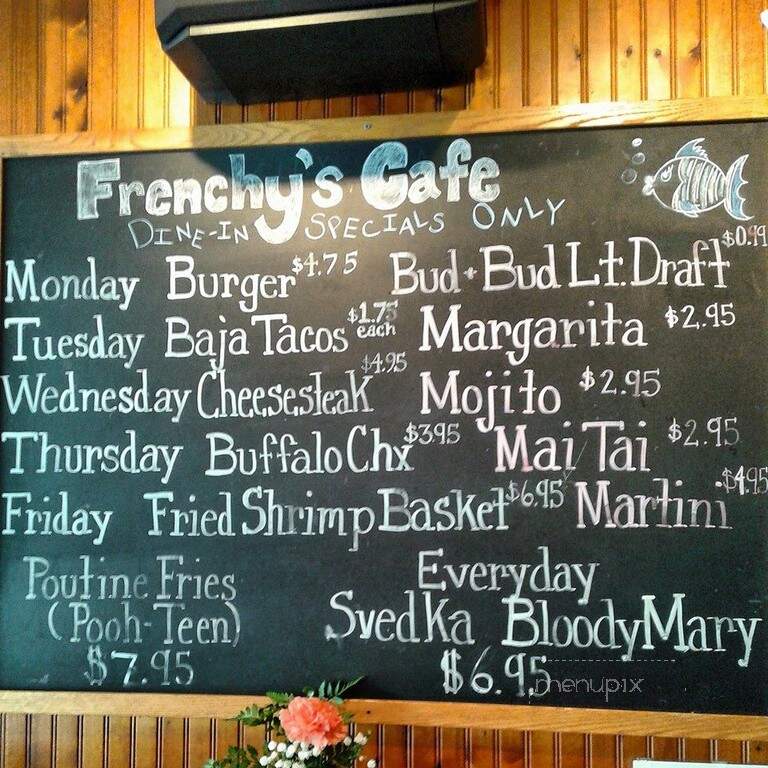 Frenchy's Cafe
DINE-IN SPECIALS ONLY
Monday Burger $4.75 Bud + Bud Lt. Draft $0.99
Tuesday Baja Tacos $1.75 each Margarita $2.95
Wednesday Cheesesteak $4.95 Mojito $2.95
Thursday Buffalo Chx $3.95 Mai Tai $2.95
Friday Fried Shrimp Basket $6.95 Martini $4.95
Poutine Fries
(Pooh-Teen)
$7.95
Everyday
Svedka Bloody Mary
$6.95
menupix